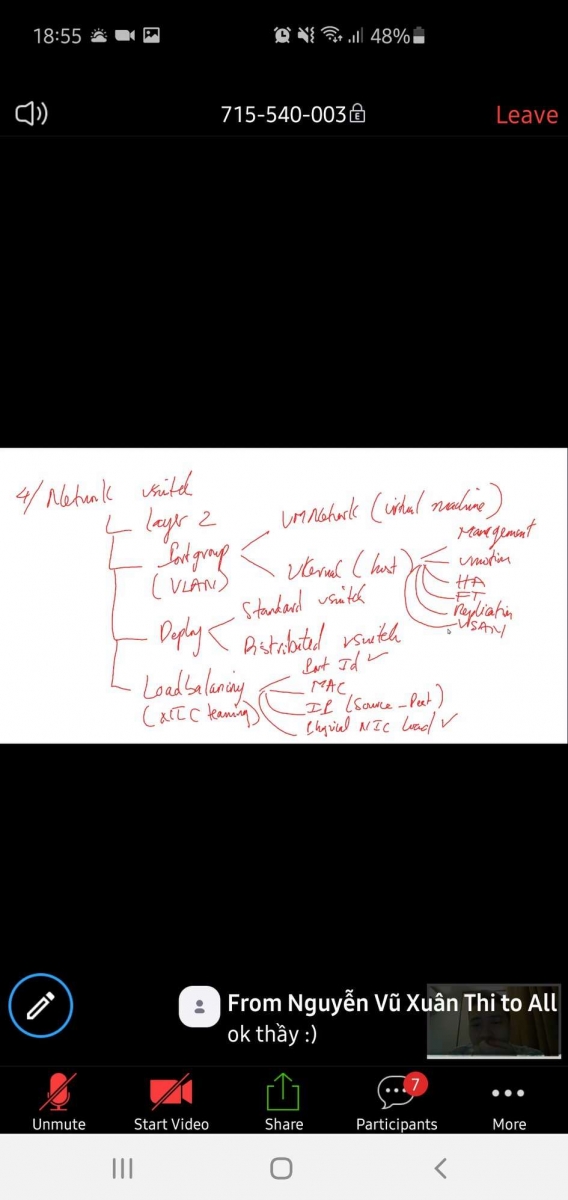 18:55
48%
715-540-003
Leave
4/ Network vswitch
Layer 2
Portgroup
(VLAN)
VMNetwork (virtual machine)
VKernel (host)
Management
vmotion
HA
FT
Replication
VSAN
Deploy
Standard vswitch
Distributed vswitch
Loadbalancing
(NIC teaming)
Port Id ✓
MAC
IP (Source - Dest)
Physical NIC Load ✓
From Nguyễn Vũ Xuân Thi to All
ok thầy :)
7
Unmute
Start Video
Share
Participants
More